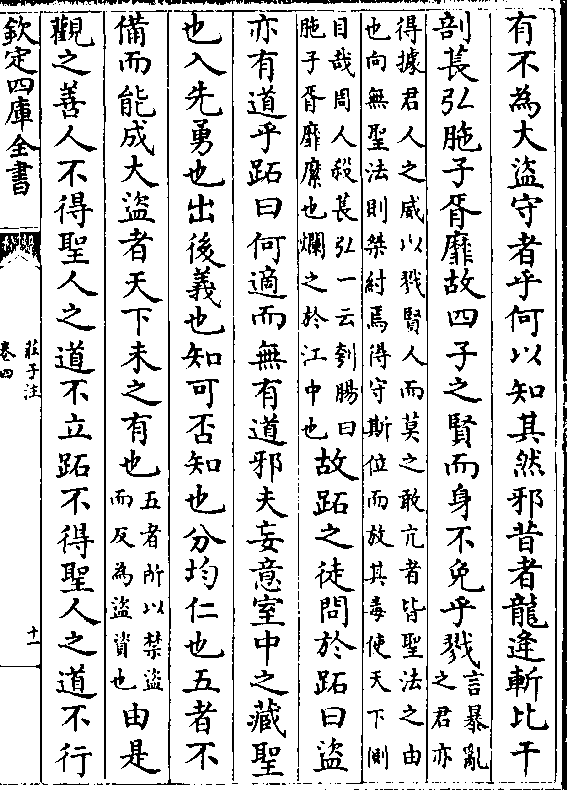 有不為大盜守者乎何以知其然邪昔者龍逄斬比干
剖萇弘胣子胥靡故四子之賢而身不免乎戮言暴亂
之君亦
得據君人之威以戮賢人而莫之敢亢者皆聖法之由
也向無聖法則桀紂焉得守斯位而放其毒使天下側
目哉周人殺萇弘一云刳腸曰
胣子胥靡縻也爛之於江中也
故跖之徒問於跖曰盜
亦有道乎跖曰何適而無有道邪夫妄意室中之藏聖
也入先勇也出後義也知可否知也分均仁也五者不
備而能成大盜者天下未之有也五者所以禁盜
而反為盜資也
由是
觀之善人不得聖人之道不立跖不得聖人之道不行
欽定四庫全書
莊子注
卷四
十一